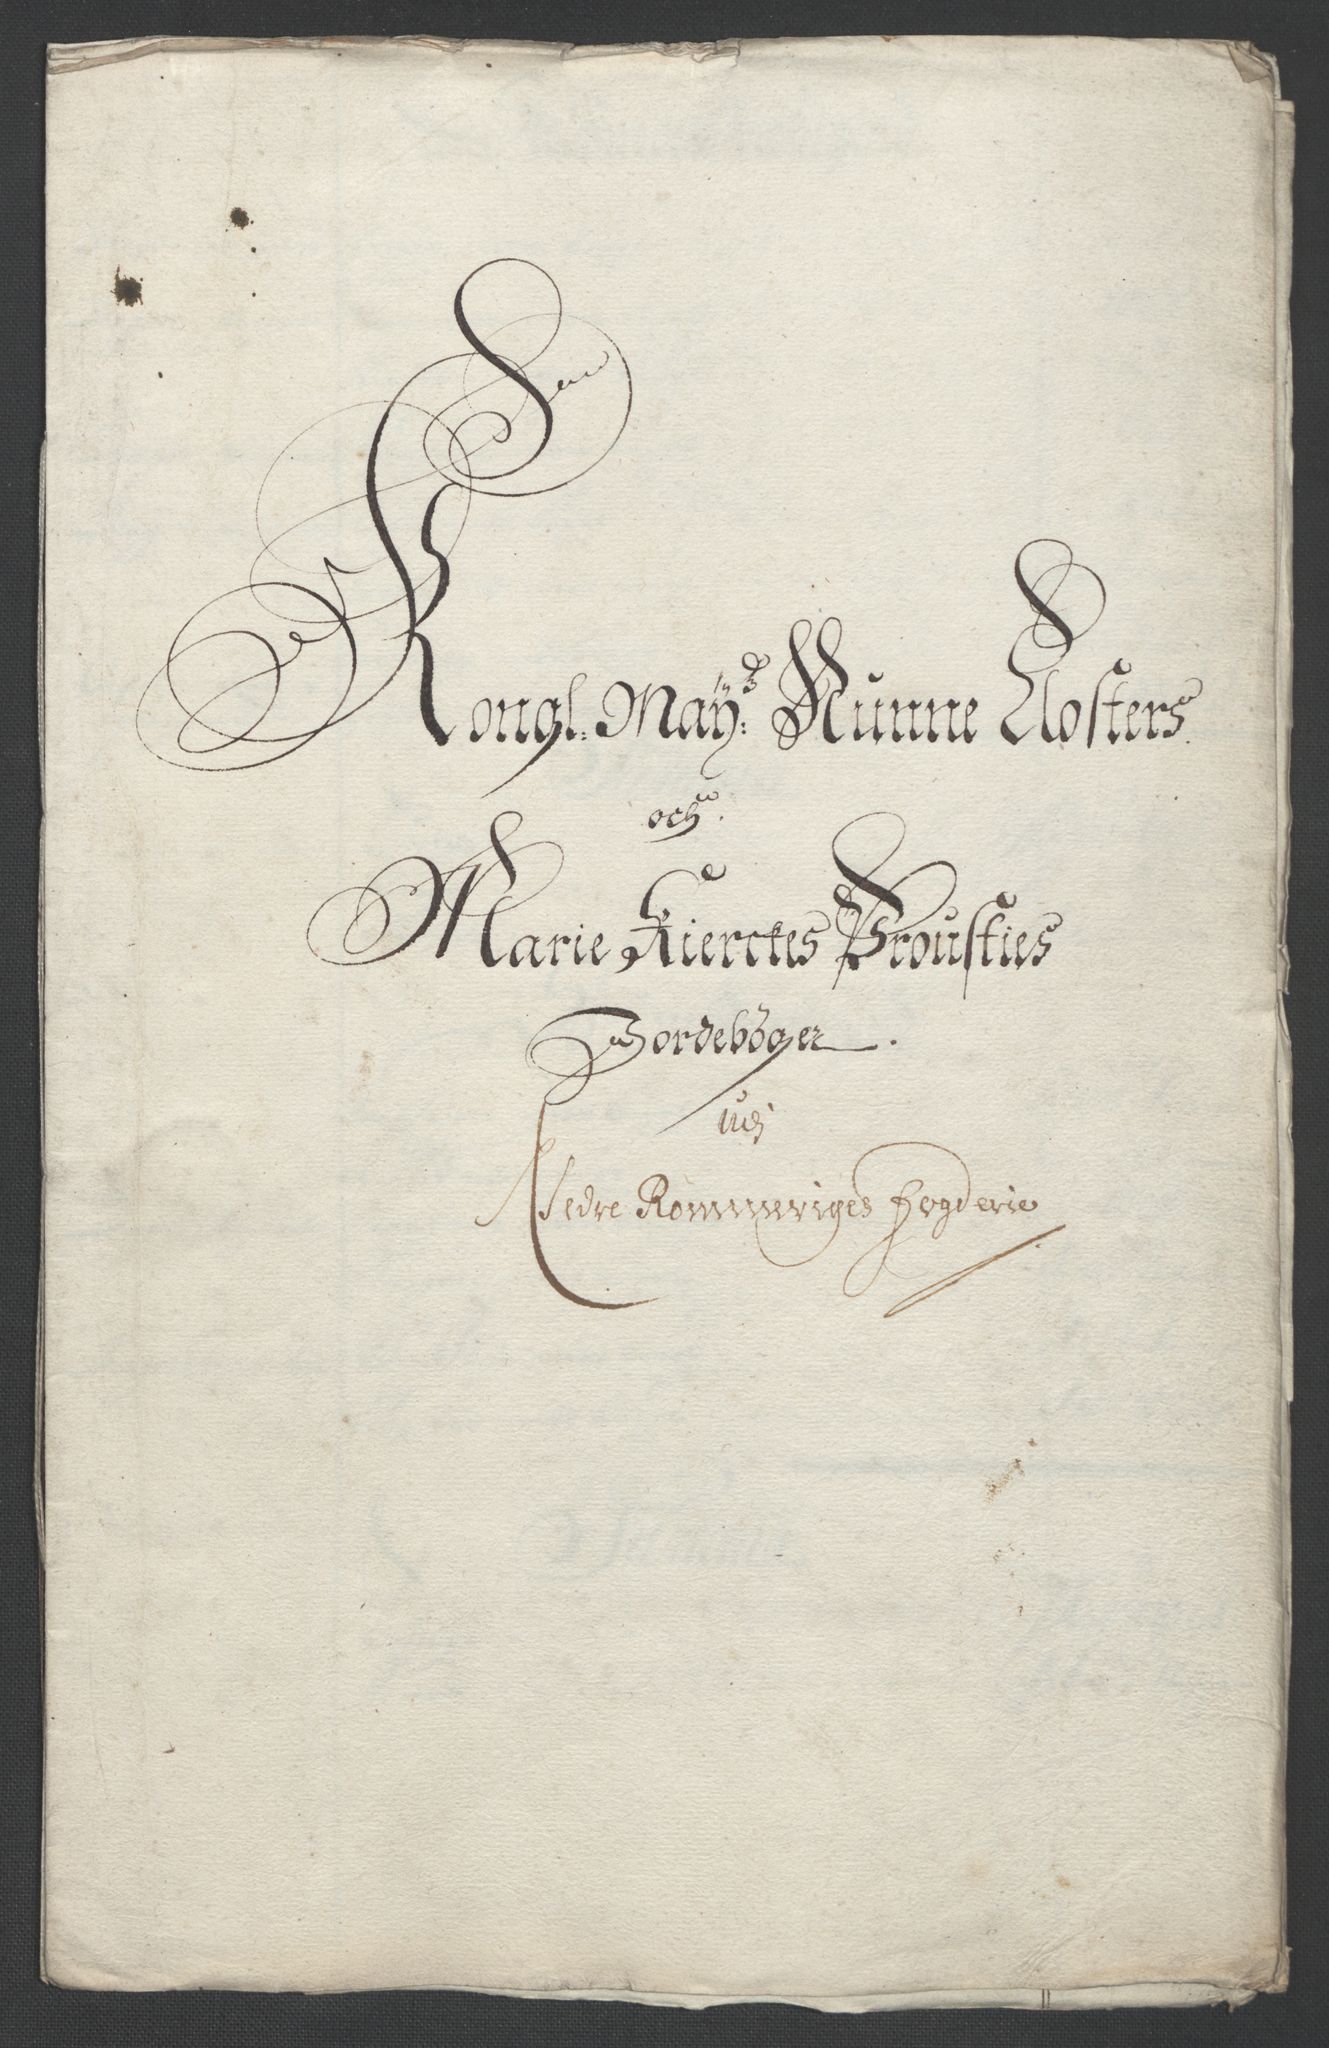 Kongl. Maÿ:ᵗˢ Nunne Closters
och
Marie Kierckes Prousties
Jordebøger.
udj
Nedre Rommeriges fogderie